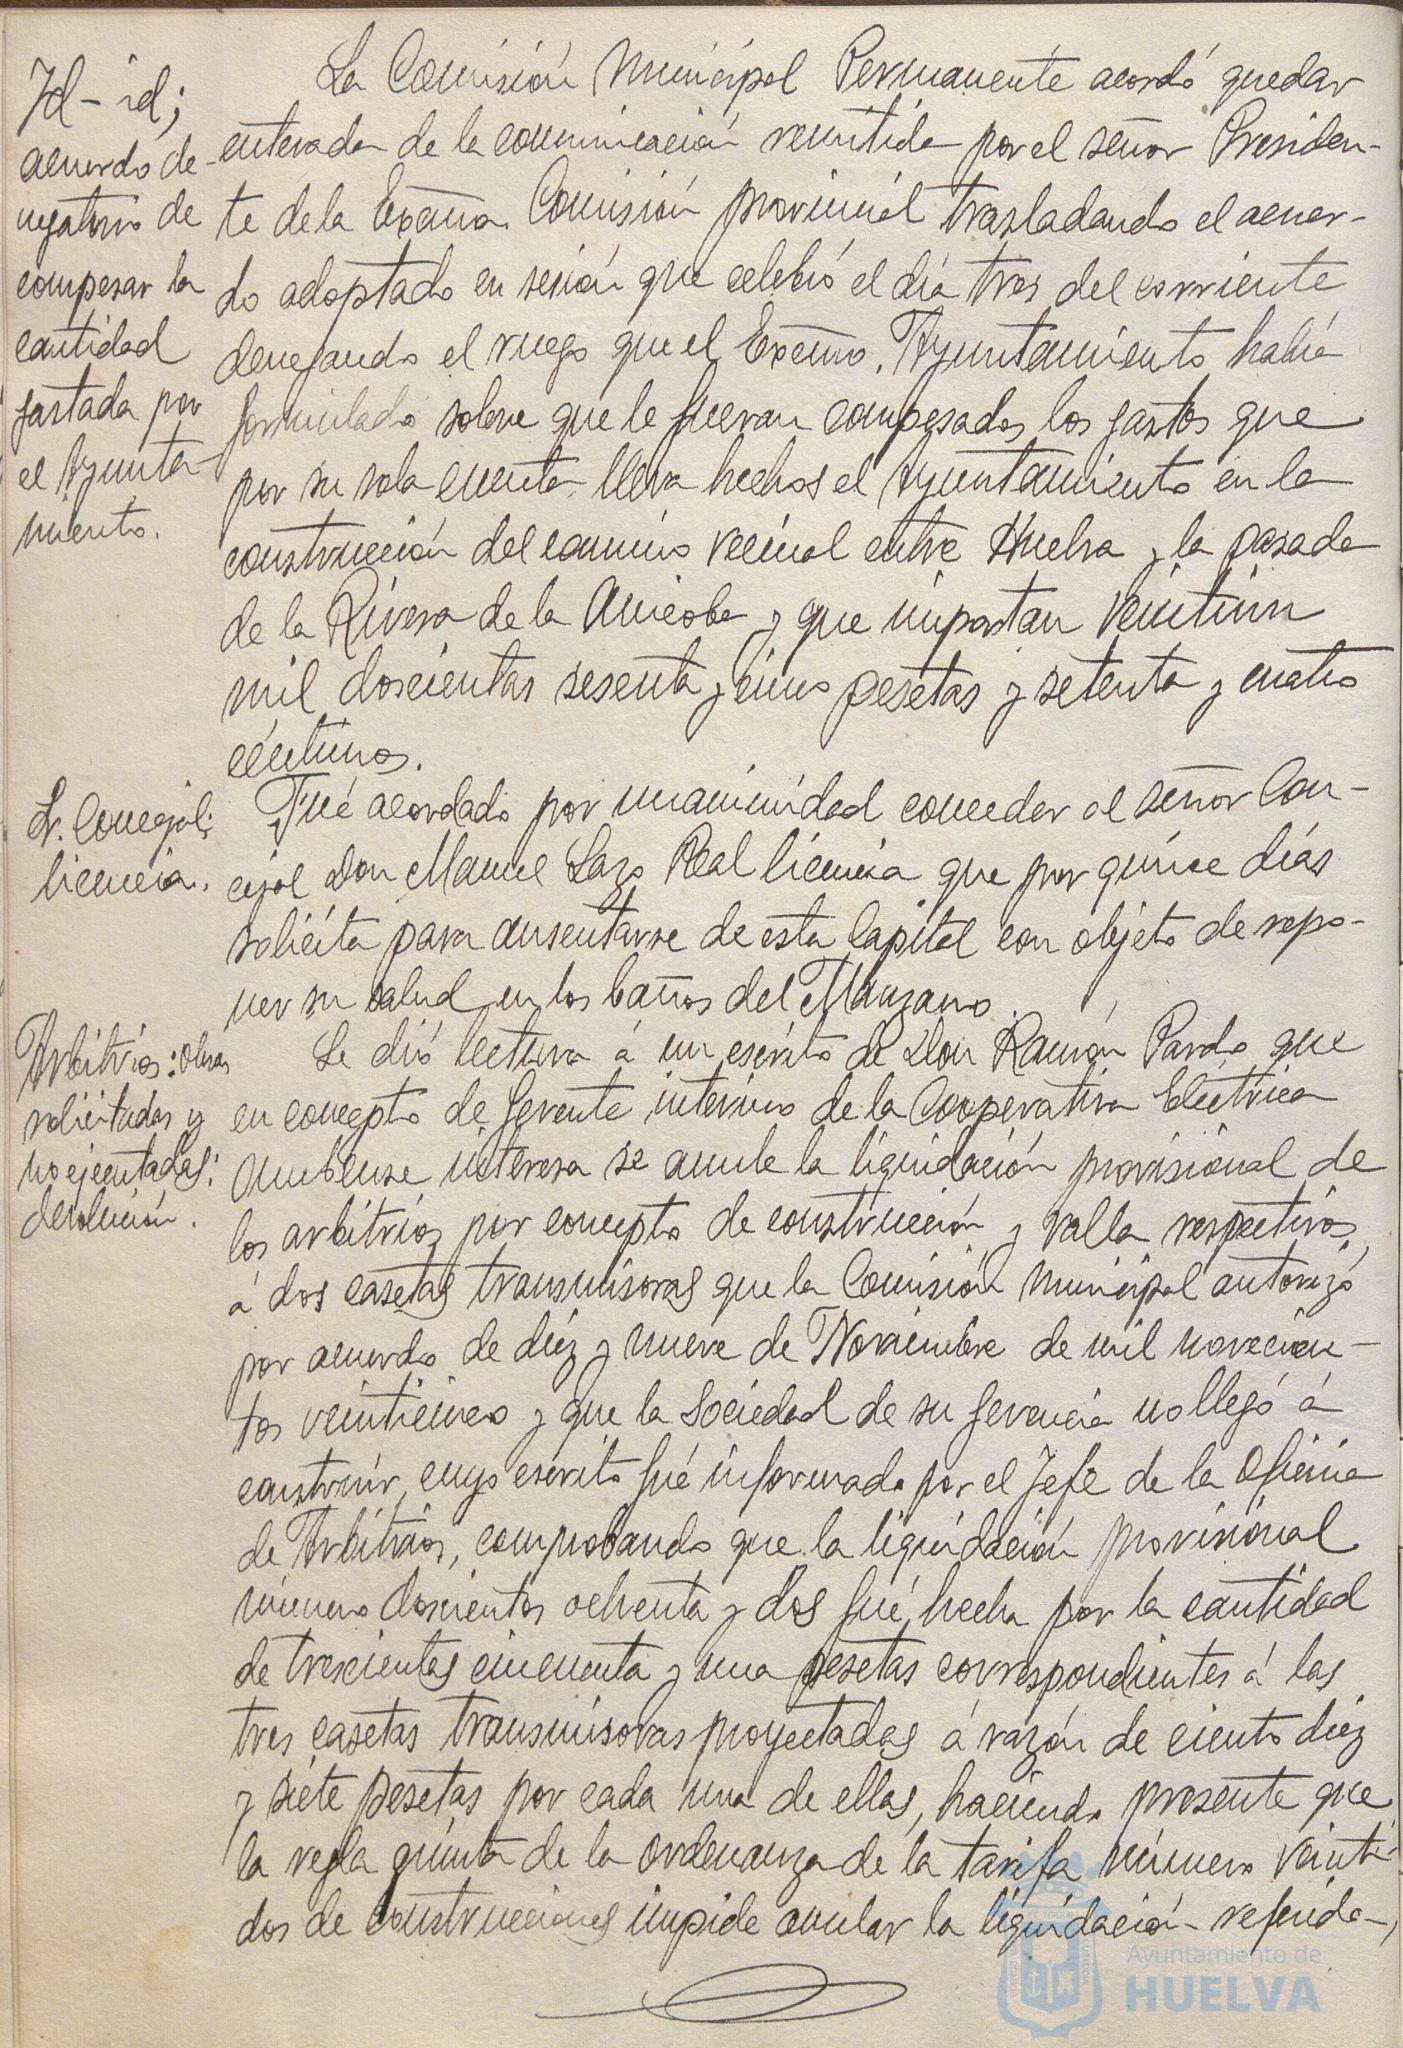 Id-id;
acuerdo de-
negativo de
compesar la
cantidad
gastada por
el Ayunta-
miento.
La Comisión Municipal Permanente acordó quedar
enterada de la comunicación remitida por el señor Presiden-
te de la Excma. Comisión provincial trasladando el acuer-
do adoptado en sesión que celebró el día tres del corriente
denegando el ruego que el Excmo. Ayuntamiento había
formulado sobre que le fueran compesados los gastos que
por su sola cuenta lleva hechos el Ayuntamiento en la
construcción del camino vecinal entre Huelva y la pasada
de la Rivera de la Anicoba y que importan veintiun
mil doscientas sesenta y cinco pesetas y setenta y cuatro
céntimos.
Sr. Concejal;
licencia.
Fué acordado por unanimidad conceder al señor Con-
cejal Don Manuel Lazo Real licencia que por quince días
solicita para ausentarse de esta Capital con objeto de repo-
ner su salud en los baños del Manzano.
Arbitrios: obras
solicitadas y
no ejecutadas:
devolución.
Se dió lectura á un escrito de Don Ramón Pardo que
en concepto de Gerente interino de la Cooperativa Eléctrica
Onubense interesa se anule la liquidación provisional de
los arbitrios por concepto de construcción y valla respectivos
á dos casetas transmisoras que la Comisión Municipal autorizó
por acuerdo de diez y nueve de Noviembre de mil novecien-
tos veinticinco y que la Sociedad de su gerencia no llegó á
construir, cuyo escrito fué informado por el Jefe de la Oficina
de Arbitrios, comprobando que la liquidación provisional
número doscientos ochenta y dos fué hecha por la cantidad
de trescientas cincuenta y una pesetas correspondientes á las
tres casetas transmisoras proyectadas á razón de ciento diez
y siete pesetas por cada una de ellas, haciendo presente que
la regla quinta de la ordenanza de la tarifa número veinti-
dos de construcciones impide anular la liquidación referida,
Ayuntamiento de
HUELVA